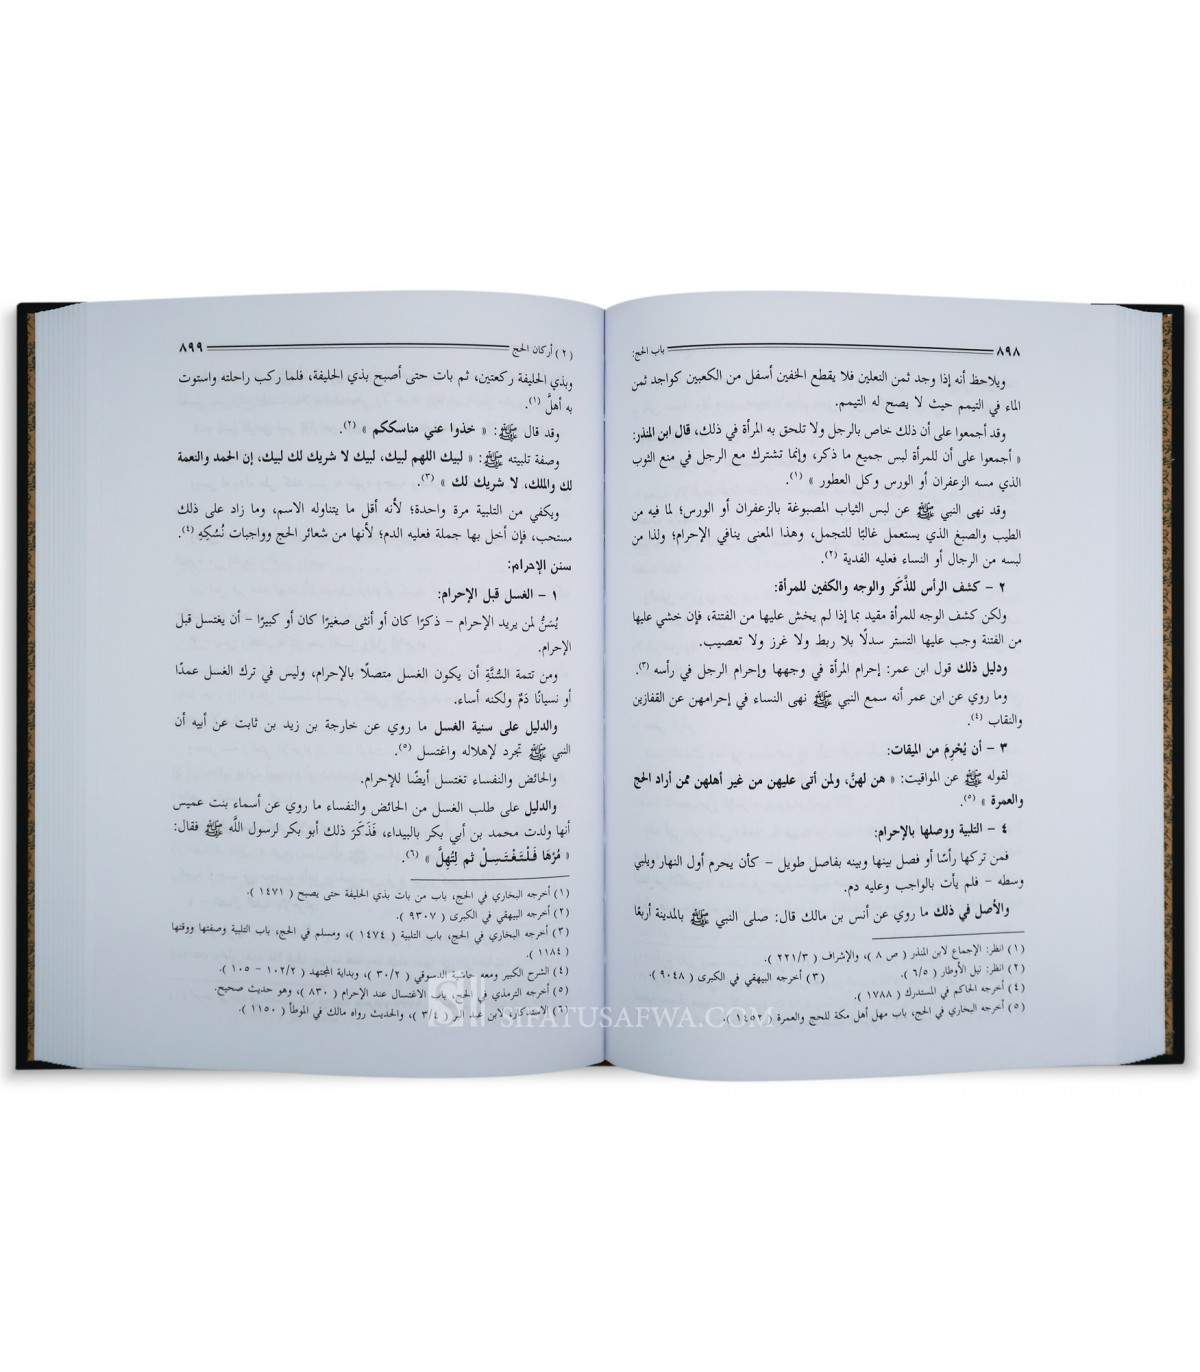 ٨٩٨ باب الحج:
ويلاحظ أنه إذا وجد ثمن النعلين فلا يقطع الخفين أسفل من الكعبين كواجد ثمن
الماء في التيمم حيث لا يصح له التيمم.
وقد أجمعوا على أن ذلك خاص بالرجل ولا تلحق به المرأة في ذلك، قال ابن المنذر:
« أجمعوا على أن للمرأة لبس جميع ما ذكر، وإنما تشترك مع الرجل في منع الثوب
الذي مسه الزعفران أو الورس وكل العطور » (١).
وقد نهى النبي ﷺ عن لبس الثياب المصبوغة بالزعفران أو الورس؛ لما فيه من
الطيب والصبغ الذي يستعمل غالبًا للتجمل، وهذا المعنى ينافي الإحرام؛ ولذا من
لبسه من الرجال أو النساء فعليه الفدية (٢).
٢ - كشف الرأس للذَّكَر والوجه والكفين للمرأة:
ولكن كشف الوجه للمرأة مقيد بما إذا لم يخش عليها من الفتنة، فإن خشي عليها
من الفتنة وجب عليها التستر سدلًا بلا ربط ولا غرز ولا تعصيب.
ودليل ذلك قول ابن عمر: إحرام المرأة في وجهها وإحرام الرجل في رأسه (٣).
وما روي عن ابن عمر أنه سمع النبي ﷺ نهى النساء في إحرامهن عن القفازين
والنقاب (٤).
٣ - أن يُحْرِمَ من الميقات:
لقوله ﷺ عن المواقيت: « هن لهنَّ، ولمن أتى عليهن من غير أهلهن ممن أراد الحج
والعمرة » (٥).
٤ - التلبية ووصلها بالإحرام:
فمن تركها رأسًا أو فصل بينها وبينه بفاصل طويل - كأن يحرم أول النهار ويلبي
وسطه - فلم يأت بالواجب وعليه دم.
والأصل في ذلك ما روي عن أنس بن مالك قال: صلى النبي ﷺ بالمدينة أربعًا
(١) انظر: الإجماع لابن المنذر ( ص ٨ )، والإشراف ( ٢٢١/٣ ).
(٢) انظر: نيل الأوطار ( ٦/٥ ). (٣) أخرجه البيهقي في الكبرى ( ٩٠٤٨ ).
(٤) أخرجه الحاكم في المستدرك ( ١٧٨٨ ).
(٥) أخرجه البخاري في الحج، باب مهل أهل مكة للحج والعمرة ( ١٤٥٢ ).
( ٢ ) أركان الحج ٨٩٩
وبذي الحليفة ركعتين، ثم بات حتى أصبح بذي الحليفة، فلما ركب راحلته واستوت
به أهلَّ (١).
وقد قال ﷺ: « خذوا عني مناسككم » (٢).
وصفة تلبيته ﷺ: « لبيك اللهم لبيك، لبيك لا شريك لك لبيك، إن الحمد والنعمة
لك والملك، لا شريك لك » (٣).
ويكفي من التلبية مرة واحدة؛ لأنه أقل ما يتناوله الاسم، وما زاد على ذلك
مستحب، فإن أخل بها جملة فعليه الدم؛ لأنها من شعائر الحج وواجبات نُسُكِهِ (٤).
سنن الإحرام:
١ - الغسل قبل الإحرام:
يُسَنُّ لمن يريد الإحرام - ذكرًا كان أو أنثى صغيرًا كان أو كبيرًا - أن يغتسل قبل
الإحرام.
ومن تتمة السُّنَّةِ أن يكون الغسل متصلًا بالإحرام، وليس في ترك الغسل عمدًا
أو نسيانًا دَمٌ ولكنه أساء.
والدليل على سنية الغسل ما روي عن خارجة بن زيد بن ثابت عن أبيه أن
النبي ﷺ تجرد لإهلاله واغتسل (٥).
والحائض والنفساء تغتسل أيضًا للإحرام.
والدليل على طلب الغسل من الحائض والنفساء ما روي عن أسماء بنت عميس
أنها ولدت محمد بن أبي بكر بالبيداء، فَذَكَرَ ذلك أبو بكر لرسول اللَّه ﷺ فقال:
« مُرْهَا فَلْتَغْتَسِلْ ثم لِتُهِلَّ » (٦).
(١) أخرجه البخاري في الحج، باب من بات بذي الحليفة حتى يصبح ( ١٤٧١ ).
(٢) أخرجه البيهقي في الكبرى ( ٩٣٠٧ ).
(٣) أخرجه البخاري في الحج، باب التلبية ( ١٤٧٤ )، ومسلم في الحج، باب التلبية وصفتها ووقتها
( ١١٨٤ ).
(٤) الشرح الكبير ومعه حاشية الدسوقي ( ٣٠/٢ )، وبداية المجتهد ١٠٢/٢ - ١٠٥ ).
(٥) أخرجه الترمذي في الحج، باب الاغتسال عند الإحرام ( ٨٣٠ )، وهو حديث صحيح.
(٦) الاستذكار لابن عبد البر ( ٣/٤ )، والحديث رواه مالك في الموطأ ( ١١٥٠ ).
SIFATUSAFWA.COM